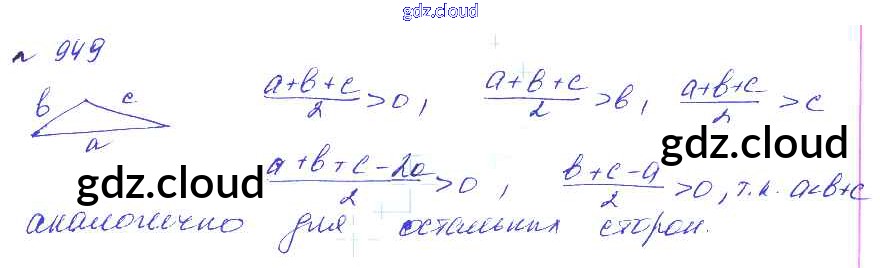 gdz.cloud
№ 949
в c a
(a+в+c)/2 > 0, (a+в+c)/2 > в, (a+в+c)/2 > c
gdz.cloud
(a+в+c-2a)/2 > 0, (в+c-a)/2 > 0, т.к. a<в+c
gdz.cloud
аналогично для остальных сторон.